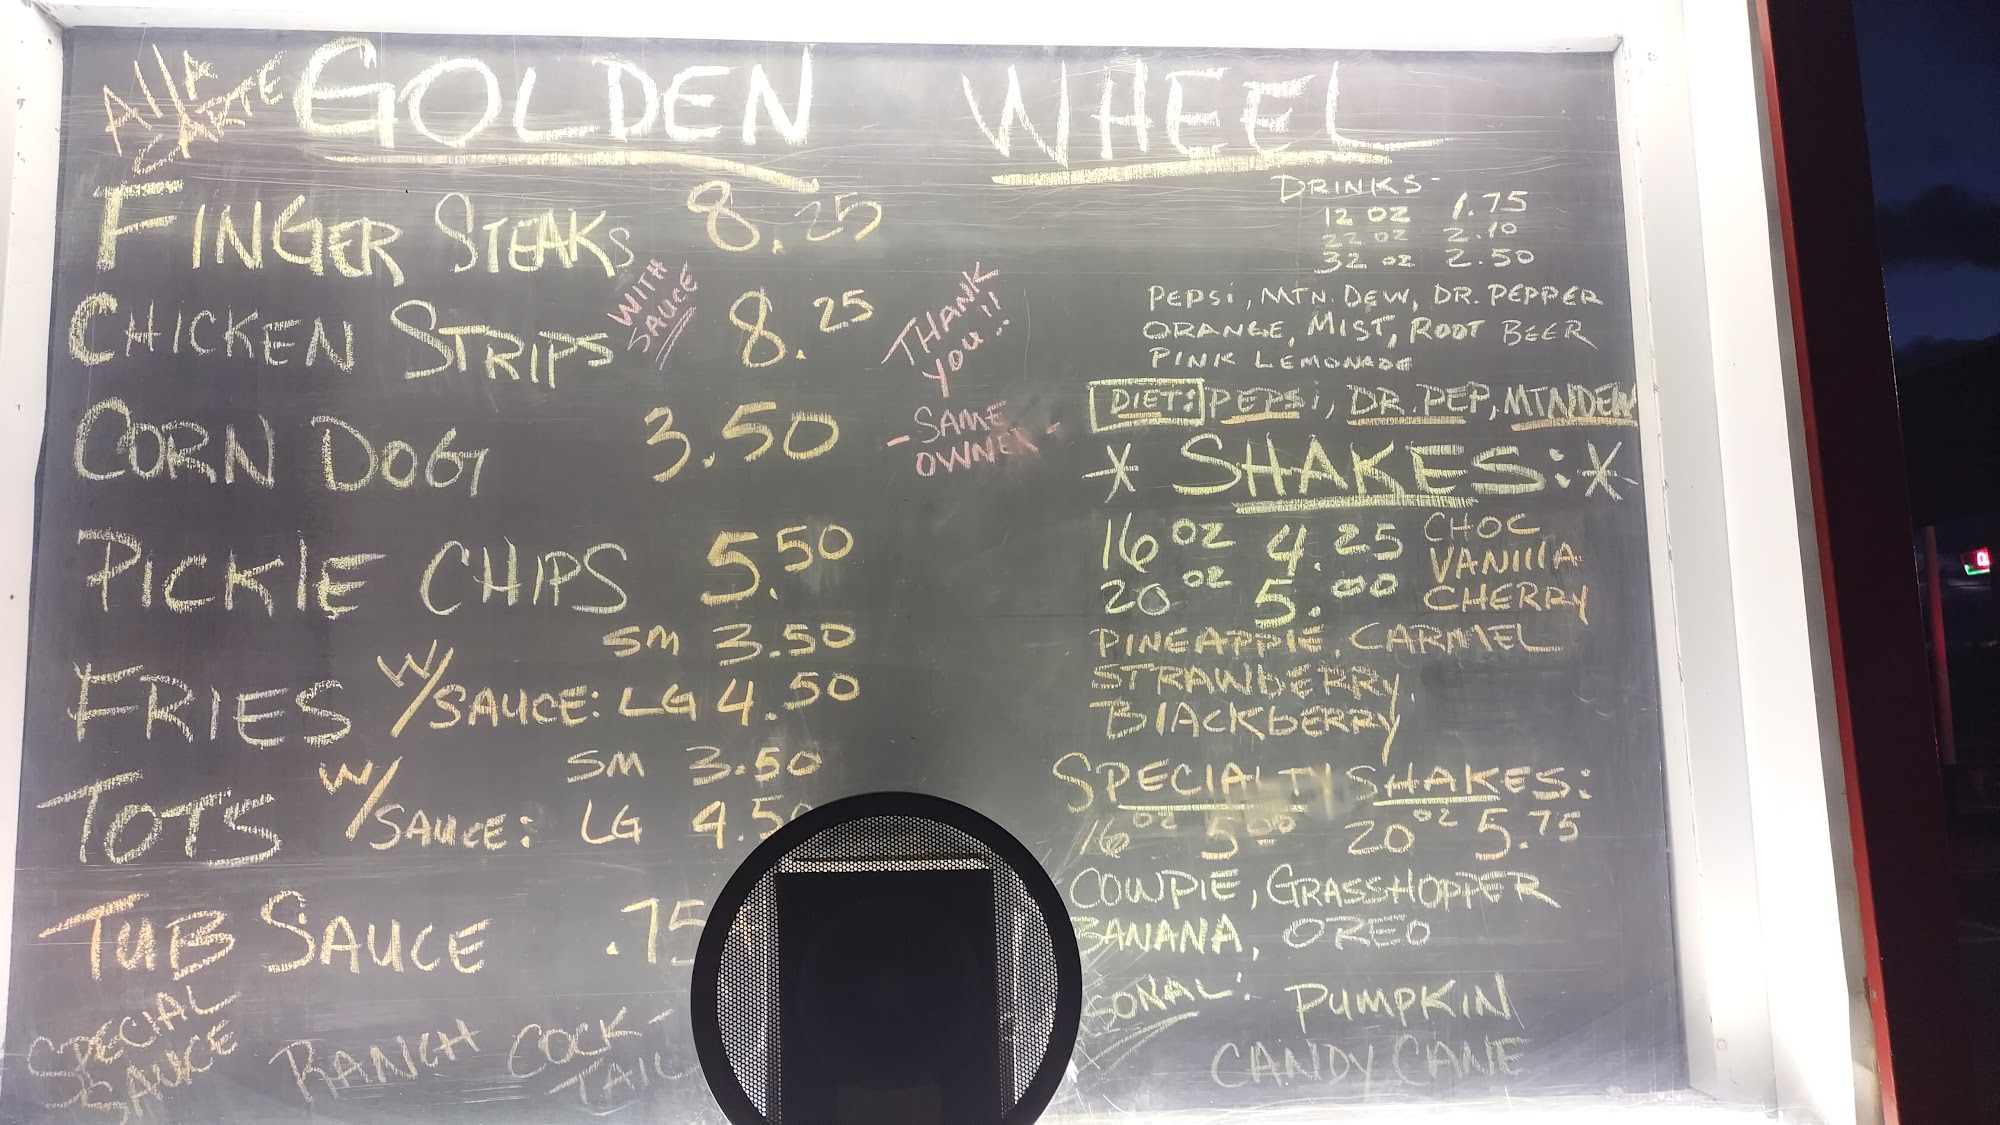 AllA CARTE
GOLDEN WHEEL
FINGER STEAKS 8.25
CHICKEN STRIPS WITH SAUCE 8.25
CORN DOG 3.50
PICKlE CHIPS 5.50
SM 3.50
FRIES W/SAUCE: LG 4.50
SM 3.50
TOTS W/SAUCE: LG 4.50
TUB SAUCE .75
SPECIAL SAUCE
RANCH
COCK-
TAIL
THANK
YOU!!
- SAME
OWNER -
DRINKS-
12 OZ 1.75
22 OZ 2.10
32 OZ 2.50
PEPSi, MTN. DEW, DR. PEPPER
ORANGE, MIST, ROOT BEER
PINK LEMONADE
DIET: PEPSi, DR. PEP, MTN DEW
* SHAKES: *
16 OZ 4.25 CHOC
VANIllA
20 OZ 5.00 CHERRY
PINEAPPlE, CARMEL
STRAWBERRY,
BlACKbERRY
SPECIALTY SHAKES:
16 OZ 5.00 20 OZ 5.75
COWPIE, GRASSHOPPER
BANANA, OREO
SONAL: PUMPKIN
CANDY CANE